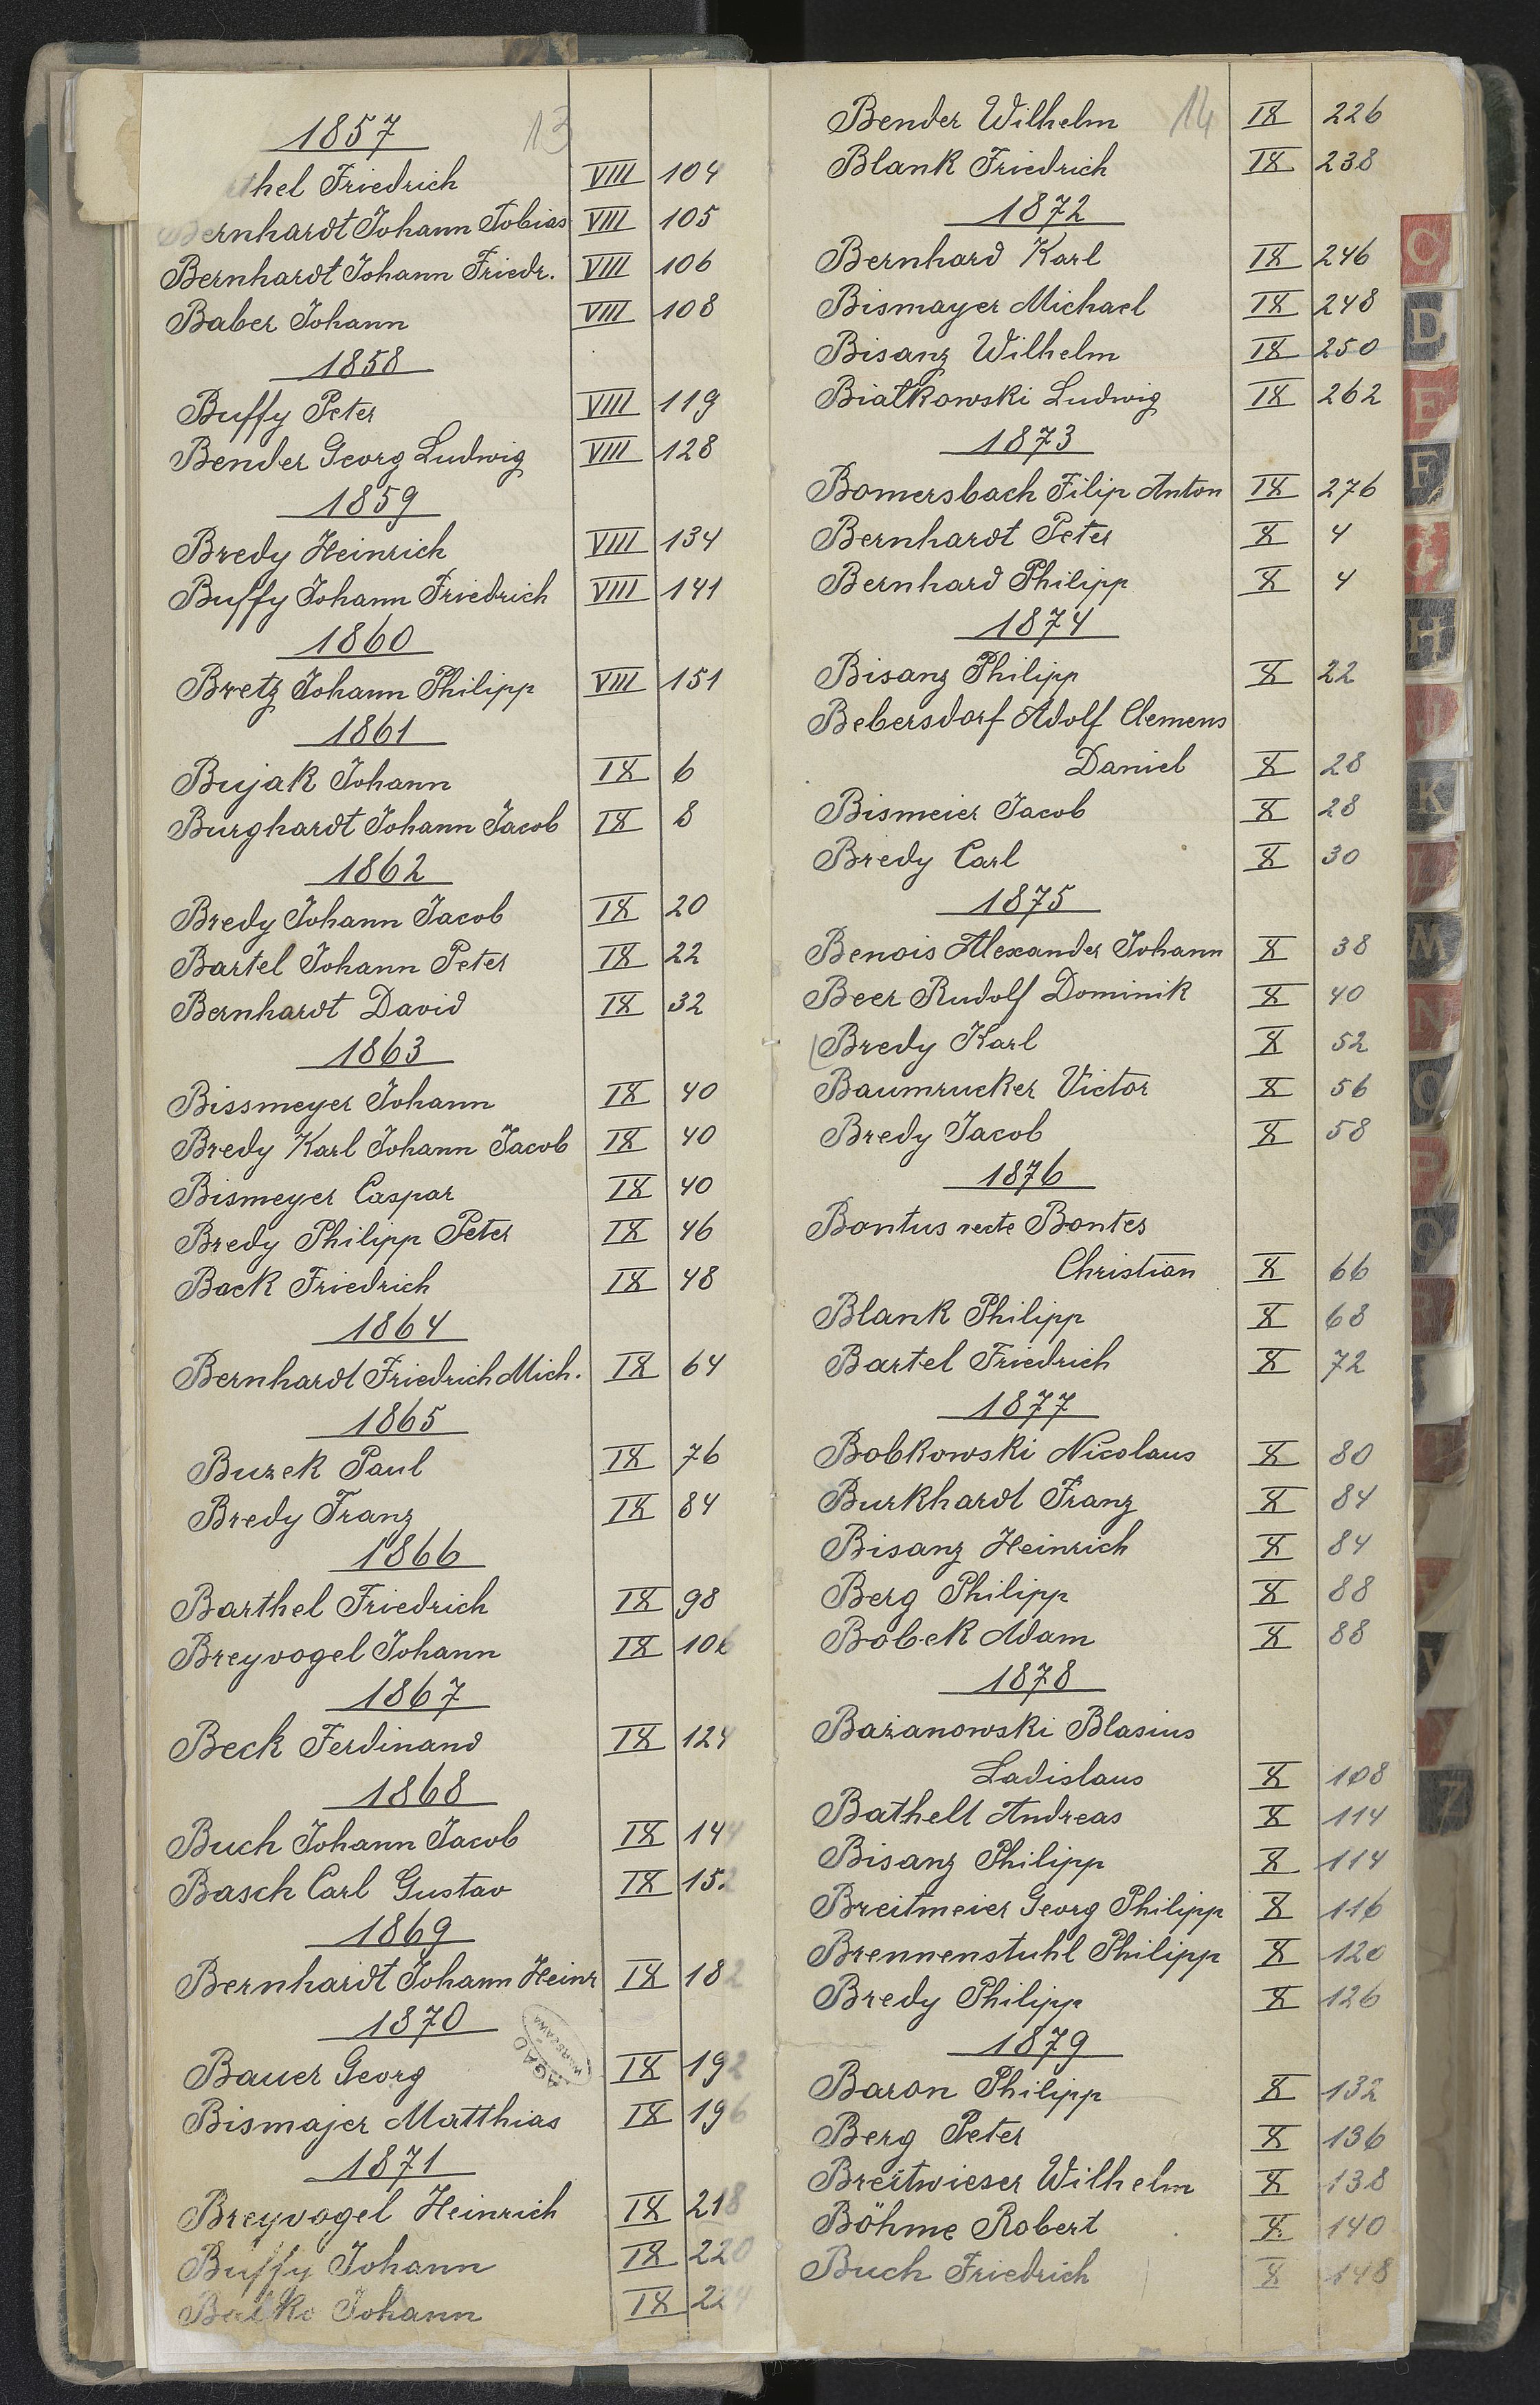 1857 13
thel Friedrich VIII 104
Bernhardt Johann Tobias VIII 105
Bernhardt Johann Friedr. VIII 106
Baber Johann VIII 108
1858
Buffy Peter VIII 119
Bender Georg Ludwig VIII 128
1859
Bredy Heinrich VIII 134
Buffy Johann Friedrich VIII 141
1860
Bretz Johann Philipp VIII 151
1861
Bujak Johann IX 6
Burghardt Johann Jacob IX 8
1862
Bredy Johann Jacob IX 20
Bartel Johann Peter IX 22
Bernhardt David IX 32
1863
Bissmeyer Johann IX 40
Bredy Karl Johann Jacob IX 40
Bismeyer Caspar IX 40
Bredy Philipp Peter IX 46
Back Friedrich IX 48
1864
Bernhardt Friedrich Mich. IX 64
1865
Buzek Paul IX 76
Bredy Franz IX 84
1866
Barthel Friedrich IX 98
Breyvogel Johann IX 106
1867
Beck Ferdinand IX 124
1868
Buch Johann Jacob IX 144
Basch Carl Gustav IX 152
1869
Bernhardt Johann Heinr IX 182
1870
AGAD
WARSZAWA
Bauer Georg IX 192
Bismajer Matthias IX 196
1871
Breyvogel Heinrich IX 218
Buffy Johann IX 220
Johann IX 224
Bender Wilhelm 14 IX 226
Blank Friedrich IX 238
1872
Bernhard Karl IX 246
Bismayer Michael IX 248
Bisanz Wilhelm IX 250
Białkowski Ludwig IX 262
1873
Bomersbach Filip Anton IX 276
Bernhardt Peter X 4
Bernhard Philipp X 4
1874
Bisanz Philipp X 22
Bebersdorf Adolf Clemens
Daniel X 28
Bismeier Jacob X 28
Bredy Carl X 30
1875
Benois Alexander Johann X 38
Beer Rudolf Dominik X 40
Bredy Karl X 52
Baumrucker Victor X 56
Bredy Jacob X 58
1876
Bontus recte Bontes
Christian X 66
Blank Philipp X 68
Bartel Friedrich X 72
1877
Bobkowski Nicolaus X 80
Burkhardt Franz X 84
Bisanz Heinrich X 84
Berg Philipp X 88
Bobek Adam X 88
1878
Bażanowski Blasius
Ladislaus X 108
Bathelt Andreas X 114
Bisanz Philipp X 114
Breitmeier Georg Philipp X 116
Brennenstuhl Philipp X 120
Bredy Philipp X 126
1879
Baron Philipp X 132
Berg Peter X 136
Breitwieser Wilhelm X 138
Böhme Robert X 140
Buch Friedrich X 148
C
D
E
F
G
H
J
K
M
N
O
P
Q
R
V
Z